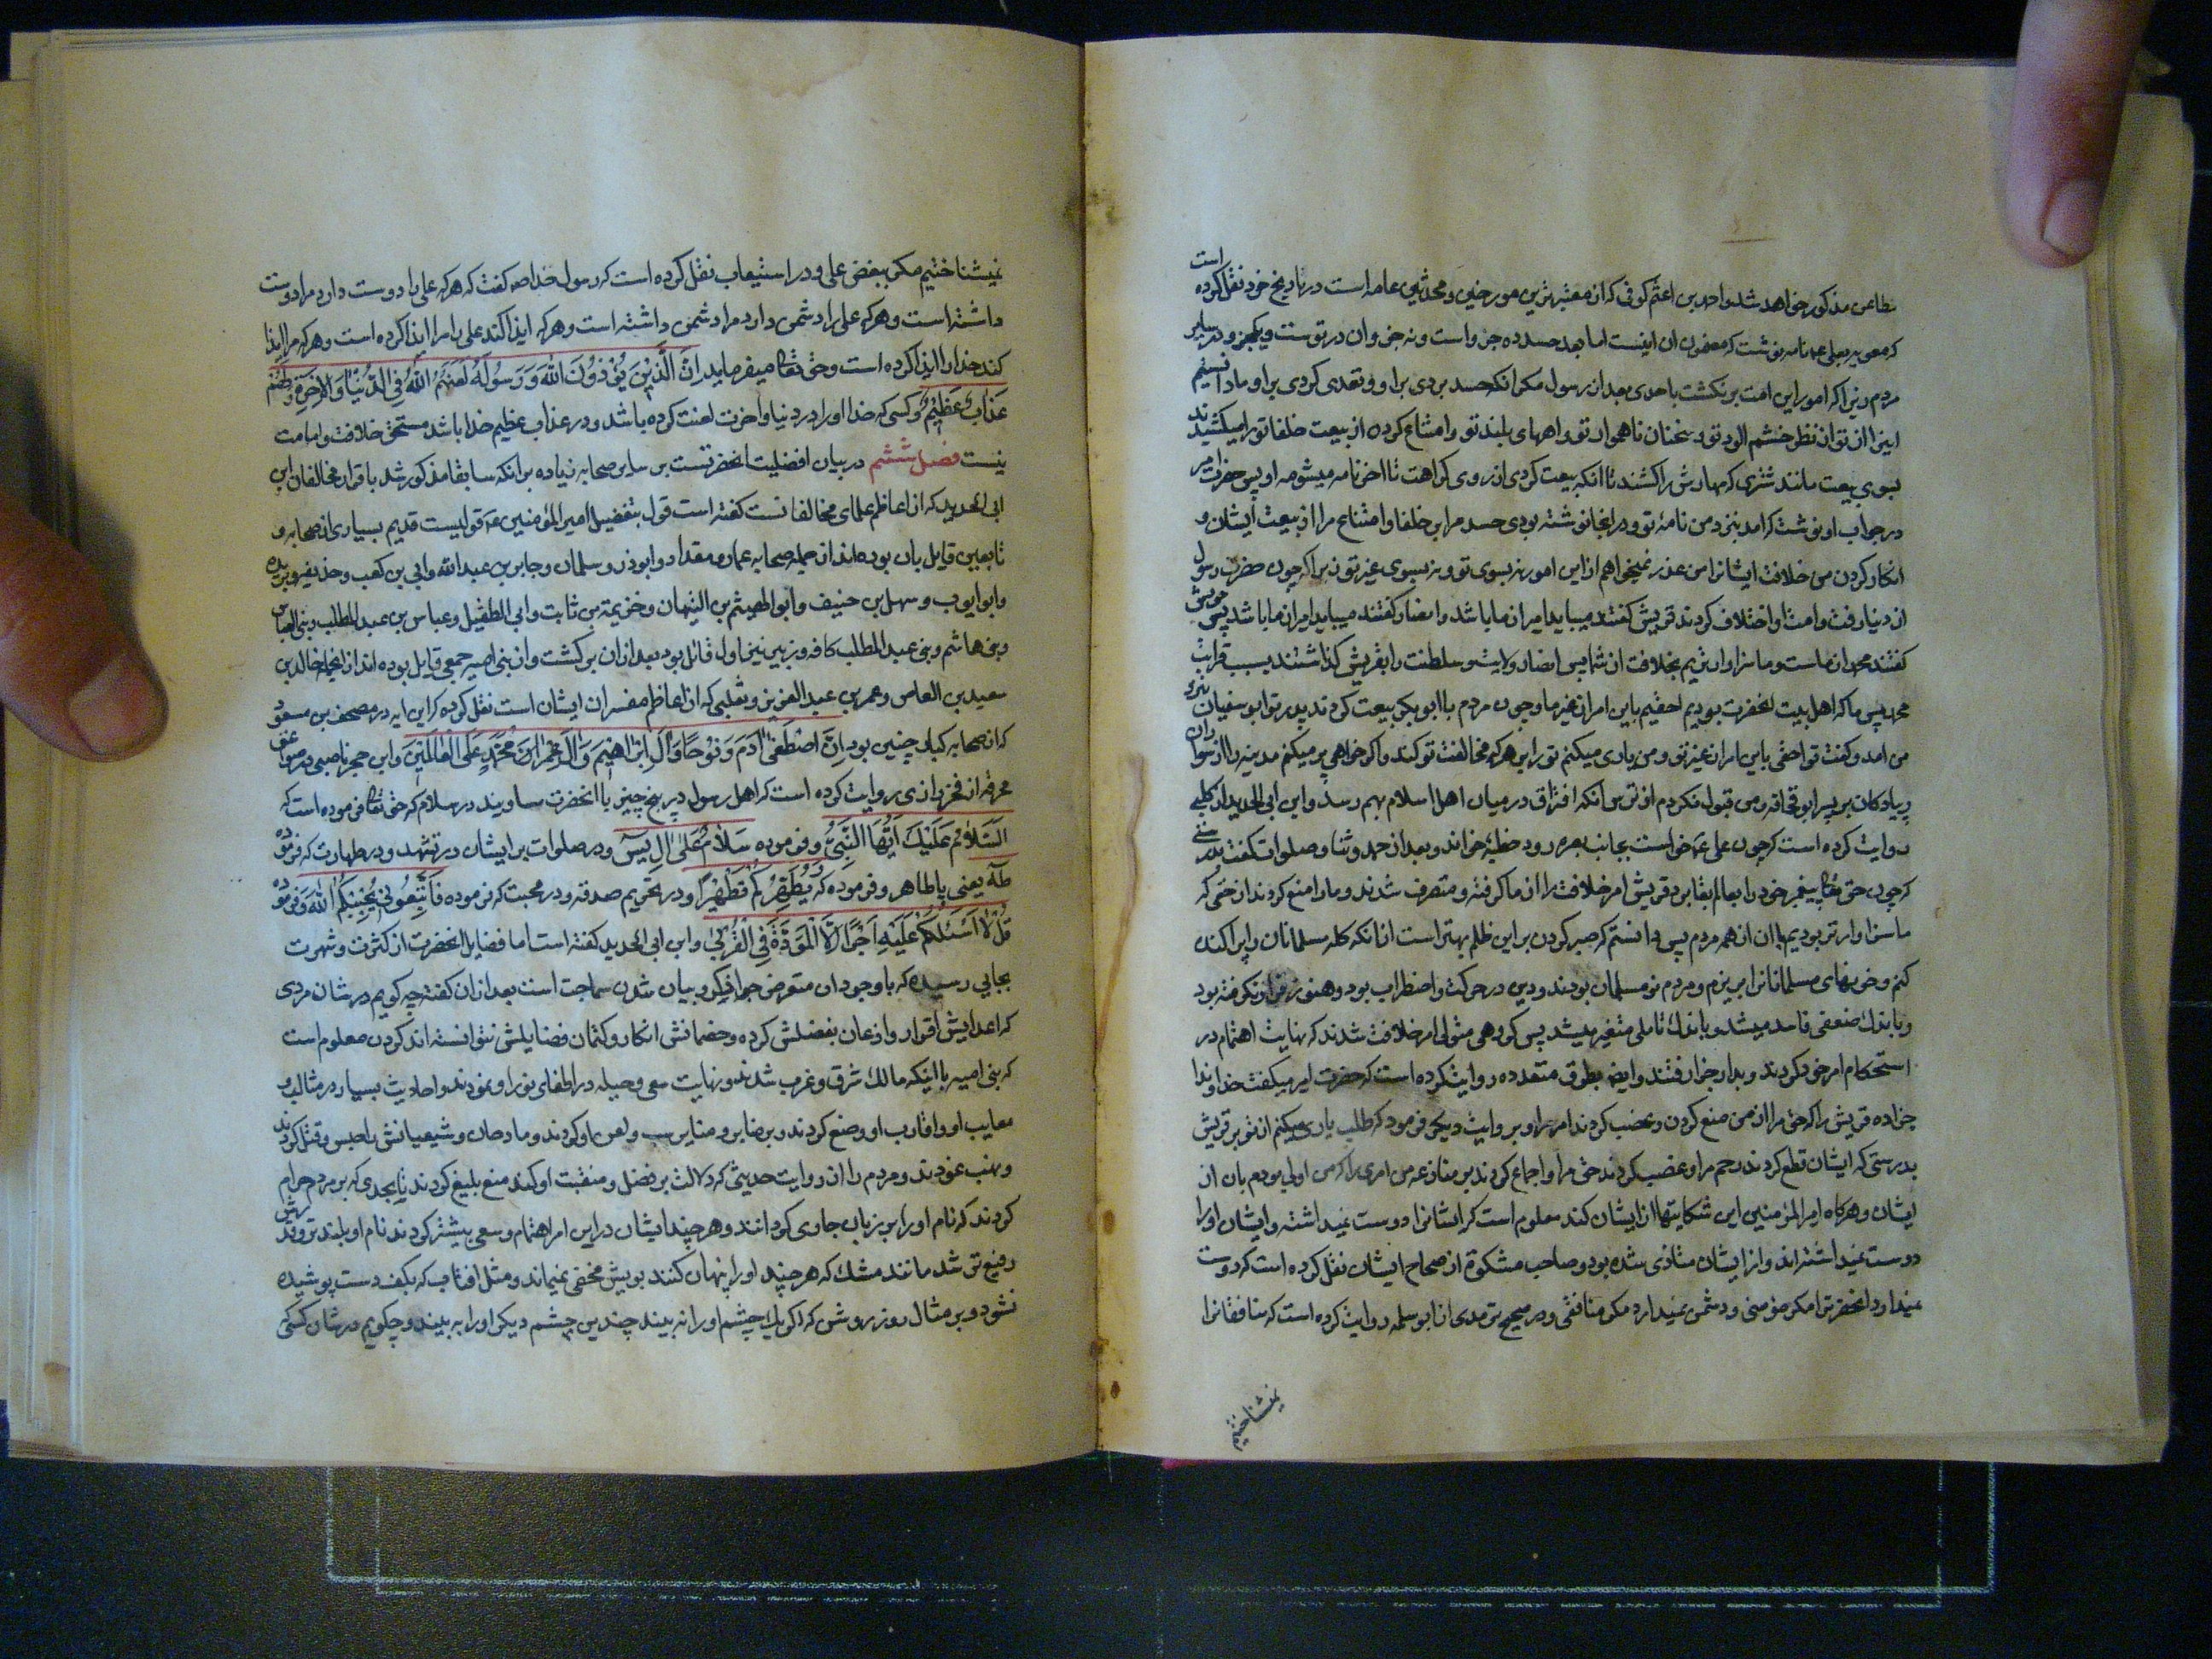 مطاعن مذکور خواهد شد و احمد بن اعثم کوفی که از معتبرترین مورخین و محدثین عامه است در تاریخ خود نقل کرده است
که معویه بعلی ع نامه نوشت که مضمون ان اینست اما بعد حسد ده جزو است و نه جزو ان در توست و یکجزو در سایر
مردم زیرا که امور این امت برنکشت باحدی بعد از رسول مکر انکه حسد بردی بر او و تعدی کردی بر او و ما دانستیم
اینرا از تو از نظر خشم الود تو و سخنان ناهموار تو و اههای بلند تو و امتناع کردن از بیعت خلفا تو را میکشیدند
بسوی بیعت مانند شتری که مهارش را کشند تا انکه بیعت کردی از روی کراهت تا اخر نامه میشومه او پس حضرت امیر
در جواب او نوشت که امد بنزد من نامهٔ تو و در انجا نوشته بودی حسد مرا بر خلفا و امتناع مرا از بیعت ایشان و
انکار کردن من خلافت ایشانرا من عذر نمیخواهم از این امور نه بسوی تو و نه بسوی غیر تو زیرا که چون حضرت رسول
از دنیا رفت و امت او اختلاف کردند قریش کفتند میباید امیر از ما باشد و انصار کفتند میباید امیر از ما باشد پس قریش
کفتند محمد از ماست و ما سزاوارتریم بخلافت از شما پس انصار ولایت و سلطنت را بقریش کذاشتند بسبب قرابت
محمد پس ما که اهل بیت انحضرت بودیم احقیم باین امر از غیر ما و چون مردم با ابوبکر بیعت کردند پدر تو ابوسفیان بنزد
من امد و کفت تو احقی باین امر از غیر تو و من یاری میکنم تو را بر هر که مخالفت تو کند و اکر خواهی پر میکنم مدینه را از سواران
و پیادکان بر پسر ابوقحافه و من قبول نکردم از ترس انکه افتراق در میان اهل اسلام بهم رسد و ابن ابی الحدید از کلبی
روایت کرده است که چون علی ع خواست بجانب بصره رود خطبهٔ خواند و بعد از حمد و ثنا و صلوات کفت بدرستی
که چون حق تعالی پیغمبر خود را بعالم بقا برد قریش امر خلافت را از ما کرفته و متصرف شدند و ما را منع کردند از حقی که
ما سزاوارتر بودیم بان از همه مردم پس دانستم که صبر کردن بر این ظلم بهتر است از انکه کله مسلمانان را پراکنده
کنم و خونهای مسلمانانرا بریزم و مردم نومسلمان بودند و دین در حرکت و اضطراب بود و هنوز قرار نکرفته بود
و باندک ضعفی فاسد میشد و باندک تاملی متغیر میشد پس کروهی متولی امر خلافت شدند که نهایت اهتمام در
استحکام امر خود کردند و بدار جزا رفتند و ایضا بطرق متعدده روایت کرده است که حضرت امیر میکفت خداوندا
جزا ده قریش را که حق مرا از من منع کردن و غصب کردند امر مرا و بروایت دیکر فرمود که طلب یاری میکنم از تو بر قریش
بدرستی که ایشان قطع کردند رحم مرا و غصب کردند حق مرا و اجماع کردند بر منازعه من امری را که من اولی بودم بان از
ایشان و هرکاه امیر المؤمنین این شکایتها از ایشان کند معلوم است که ایشانرا دوست نمیداشته و ایشان او را
دوست نمیداشته اند و از ایشان متاذی شده بود و صاحب مشکوة از صحاح ایشان نقل کرده است که دوست
نمیدارد انحضرترا مکر مؤمنی و دشمن نمیدارد مکر منافقی و در صحیح ترمدی از ابو سلمه روایت کرده است که منافقانرا
نمیشناختیم
نمیشناختیم مکر ببغض علی و در استیعاب نقل کرده است که رسول خدا ص کفت که هر که علی را دوست دارد مرا دوست
داشته است و هر که علی را دشمن دارد مرا دشمن داشته است و هر که ایذا کند علی را مرا ایذا کرده است و هر که مرا ایذا
کند خدا را ایذا کرده است و حق تعالی میفرماید اِنَّ الَّذینَ یُؤْذُونَ اللّٰهَ وَ رَسُولَهُ لَعَنَهُمُ اللّٰهُ فِی الدُّنْیٰا وَ الْاٰخِرَةِ وَ لَهُمْ
عَذٰابٌ عَظیمٌ و کسی که خدا او را در دنیا و اخرت لعنت کرده باشد و در عذاب عظیم خدا باشد مستحق خلافت و امامت
نیست فصل ششم در بیان افضلیت انحضرتست بر سایر صحابه زیاده بر انکه سابقا مذکور شد باقرار مخالفان ابن
ابی الحدید که از اعاظم علمای مخالفانست کفته است قول بتفضیل امیر المؤمنین ع قولیست قدیم بسیاری از صحابه و
تابعین قایل بان بوده اند از جمله صحابه عمار و مقداد و ابوذر و سلمان و جابر بن عبد الله و ابی بن کعب و حذیفه و بریده
و ابو ایوب و سهل بن حنیف و ابو الهیثم بن التیهان و خزیمة بن ثابت و ابی الطفیل و عباس بن عبد المطلب و بنی العباس
و بنی هاشم و بنی عبد المطلب کافه و زبیر نیز اول قائل بود بعد از ان برکشت و از بنی امیه جمعی قایل بوده اند از انجمله خالد بن
سعید بن العاص و عمر بن عبد العزیز و ثعلبی که از اعاظم مفسران ایشان است نقل کرده که این ایه در مصحف بن مسعود
که از صحابه کبار چنین بود اِنَّ اللّٰهَ اصْطَفٰی اٰدَمَ وَ نُوحًا وَ اٰلَ اِبْرٰاهیمَ وَ اٰلَ عِمْرٰانَ وَ اٰلَ مُحَمَّدٍ عَلَی الْعٰالَمینَ و ابن حجر ناصبی در صواعق
محرقه از فخر رازی روایت کرده است که اهل رسول در پنج چیز با انحضرت مساویند در سلام که حق تعالی فرموده است که
اَلسَّلٰامُ عَلَیْکَ اَیُّهَا النَّبِیُّ و فرموده سَلٰامٌ عَلٰی اٰلِ یٰسٓ و در صلوات بر ایشان در تشهد و در طهارت که فرموده
طٰهٰ یعنی یا طاهر و فرموده که یُطَهِّرَکُمْ تَطْهیرًا و در تحریم صدقه و در محبت که فرموده فَاتَّبِعُونی یُحْبِبْکُمُ اللّٰهُ و فرموده
قُلْ لٰا اَسْئَلُکُمْ عَلَیْهِ اَجْرًا اِلَّا الْمَوَدَّةَ فِی الْقُرْبٰی و ابن ابی الحدید کفته است اما فضایل انحضرت از کثرت و شهرت
بجایی رسیده که با وجود ان متعرض بیان شدن سماجت است بعد از ان کفته چه کویم در شان مردی
که اعدایش اقرار و اذعان بفضلش کرده و خصمانش انکار و کتمان فضایلش نتوانسته اند کردن معلوم است
که بنی امیه با اینکه مالک شرق و غرب شدند و نهایت سعی و حیله در اطفای نور او نمودند و احادیث بسیار در مثالب و
معایب او و اقارب او وضع کردند و بر منابر سب و لعن او کردند و مادحان و شیعیانش را حبس و قتل کردند
و نهب نمودند و مردم را از روایت حدیثی که دلالت بر فضل و منقبت او کند منع بلیغ کردند تا بحدی که بر مردم حرام
کردند که نام او را بر زبان جاری کردانند و هر چند ایشان در این امر اهتمام و سعی بیشتر کردند نام او بلندتر و قدرش
رفیع تر شد مانند مشک که هر چند او را پنهان کنند بویش مخفی نمیماند و مثل افتاب که بکف دست پوشیده
نشود و بر مثال روز روشن که اکر یک چشم او را نه بیند چندین چشم دیکر او را به بیند و چکویم در شان کسی